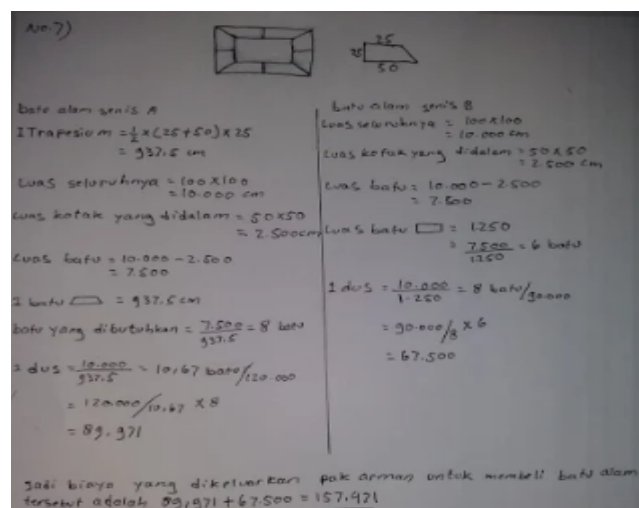 No.7)
25
25
50
batu alam jenis A
1 Trapesium = 1/2 x (25+50) x 25
= 937.5 cm
Luas seluruhnya = 100 x 100
= 10.000 cm
Luas kotak yang didalam = 50 x 50
= 2.500 cm
Luas batu = 10.000 - 2.500
= 7.500
1 batu = 937.5 cm
batu yang dibutuhkan = 7.500/937.5 = 8 batu
1 dus = 10.000/937.5 = 10,67 batu/120.000
= 120.000/10,67 x 8
= 89.971
batu alam jenis B
Luas seluruhnya = 100 x 100
= 10.000 cm
Luas kotak yang didalam = 50 x 50
= 2.500 cm
Luas batu = 10.000 - 2.500
= 7.500
Luas batu = 1.250
= 7500/1250 = 6 batu
1 dus = 10.000/1.250 = 8 batu/90.000
= 90.000/8 x 6
= 67.500
Jadi biaya yang dikeluarkan pak arman untuk membeli batu alam
tersebut adalah 89,971 + 67.500 = 157.471